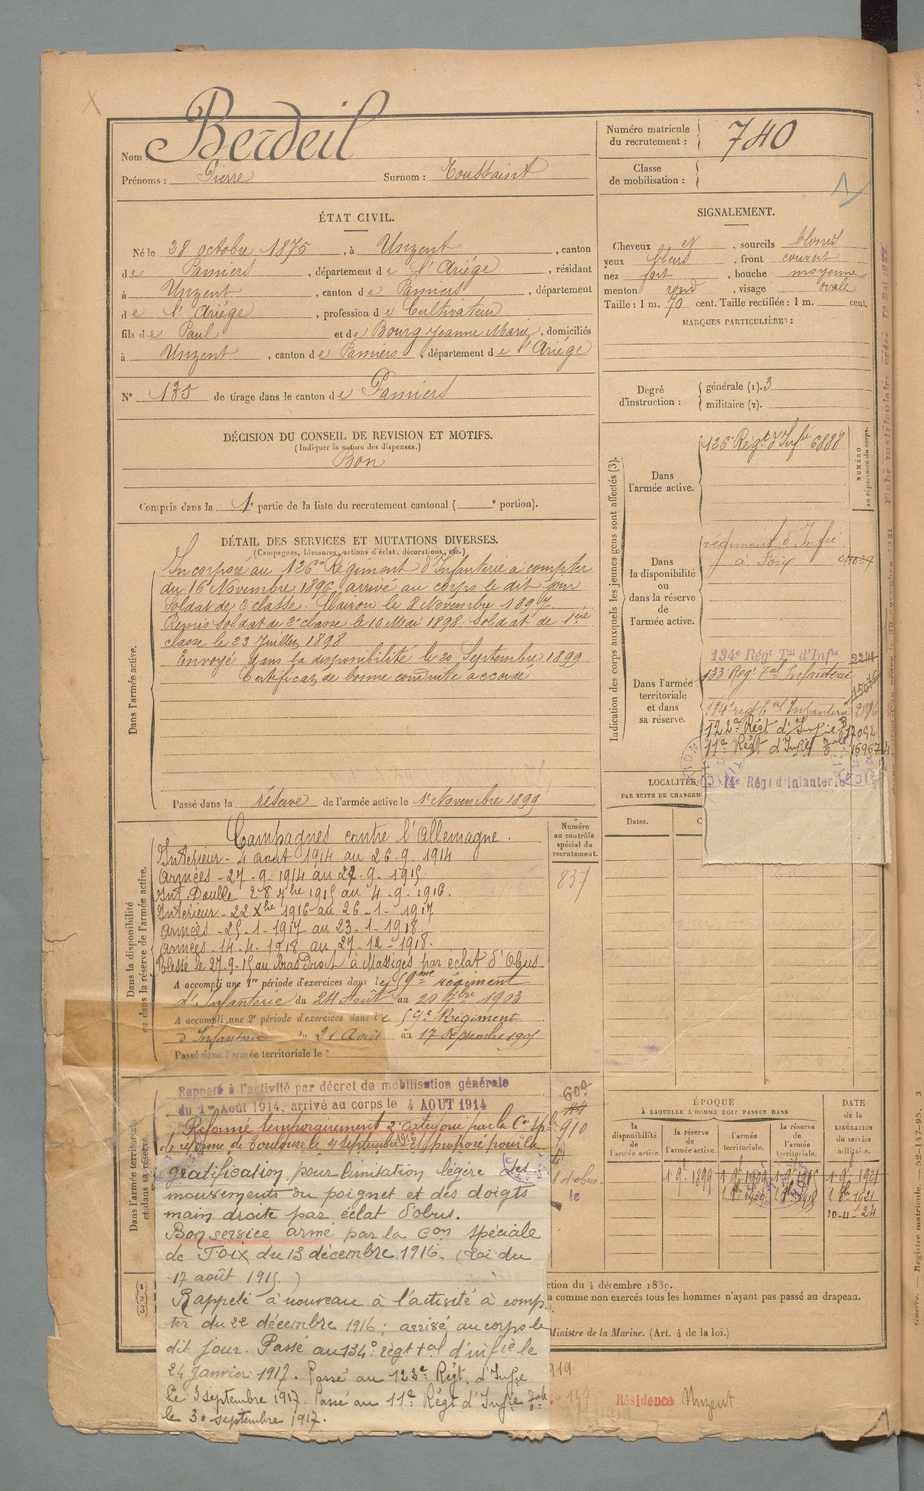 Nom Berdeil
Prénoms : Pierre Surnom : Toussaint
Numéro matricule du recrutement : 740
Classe de mobilisation :
ÉTAT CIVIL.
Né le 28 octobre 1875, à Unzent, canton
de Pamiers, département de l'Ariège, résidant
à Unzent, canton de Pamiers, département
de l'Ariège, profession de Cultivateur
fils de Paul et de Bourg Jeanne Marie, domiciliés
à Unzent, canton de Pamiers, département de l'Ariège
N° 135 de tirage dans le canton de Pamiers
SIGNALEMENT.
Cheveux et, sourcils blonds
yeux bleus, front couvert
nez fort, bouche moyenne
menton rond, visage ovale
Taille : 1 m. 70 cent. Taille rectifiée : 1 m. cent.
MARQUES PARTICULIÈRES :
Degré d'instruction : générale (1). 3
militaire (2).
DÉCISION DU CONSEIL DE REVISION ET MOTIFS.
(Indiquer la nature des dispenses.)
Bon
Compris dans la 1e partie de la liste du recrutement cantonal ( e portion).
DÉTAIL DES SERVICES ET MUTATIONS DIVERSES.
(Campagnes, blessures, actions d'éclat, décorations, etc.)
Dans l'armée active.
Incorporé au 126e Régiment d'Infanterie à compter
du 16 Novembre 1896, arrivé au corps le dit jour
Soldat de 2e classe. Clairon le 8 Novembre 1897
Remis Soldat de 2e classe le 10 Mai 1898. Soldat de 1ère
classe le 23 Juillet 1898
Envoyé dans la disponibilité le 20 Septembre 1899
Certificat de bonne conduite accordé
Passé dans la réserve de l'armée active le 1er Novembre 1899
Indication des corps auxquels les jeunes gens sont affectés (3).
NUMÉRO
Dans l'armée active.
126e Régt d'Infie 6888
Dans la disponibilité ou dans la réserve de l'armée active.
régiment d'Infie
à Foix
Dans l'armée territoriale et dans sa réserve.
134e Régt Tal d'Infie
133 Régt Tal Infanterie
122e Régt d'Infie
11e Régt d'Infie
14e Régt d'Infanterie
LOCALITÉS
PAR SUITE DE CHANGEM
Dates.
Dans la disponibilité ou dans la réserve de l'armée active.
Numéro au contrôle spécial du recrutement.
837
Campagnes contre l'Allemagne.
Intérieur - 4 août 1914 au 26-9-1914
Armées - 27-9-1914 au 27-9-1915
Int. Double 28 7bre 1915 au 4-9-1916.
Intérieur - 22 Xbre 1916 au 26-1-1917
Armées - 25-1-1917 au 23-1-1918
Armées - 14-4-1918 au 27-12-1918.
Blessé le 27-9-15 au Bras Droit à Massiges par éclat d'Obus
A accompli une 1re période d'exercices dans le 59me régiment
d'Infanterie du 24 Août au 20 7bre 1903
A accompli une 2e période d'exercices dans le 59e Régiment
d'Infanterie du 21 Août au 17 Septembre 1905
Passé dans l'armée territoriale le
Dans l'armée territoriale et dans sa réserve
Rappelé à l'activité par décret de mobilisation générale
du 1er Août 1914, arrivé au corps le 4 AOUT 1914
609
910
Réformé temporairement 2e catégorie par la Con Sple
de réforme de Toulouse le 4 septembre 1916, proposé pour la
gratification pour limitation légère des
mouvements du poignet et des doigts
main droite par éclat d'obus.
Bon service armé par la Con spéciale
de Foix du 13 décembre 1916. (Loi du
17 août 1915.)
Rappelé à nouveau à l'activité à comp
ter du 22 décembre 1916 ; arrivé au corps le
dit jour. Passé au 134e régt tal d'infie le
24 Janvier 1917. Passé au 122e Régt. d'Infie
le 3 septembre 1917. Passé au 11e Régt d'Infie
le 30 septembre 1917.
ÉPOQUE
À LAQUELLE L'HOMME DOIT PASSER DANS
la disponibilité.
la réserve de l'armée active.
l'armée territoriale.
la réserve de l'armée territoriale.
DATE de la LIBÉRATION du service militaire.
1 9bre 1899
10-11-24
ction du 4 décembre 1889.
a comme non exercés tous les hommes n'ayant pas passé au drapeau.
Ministre de la Marine. (Art. 4 de la loi.)
919
Résidence Unzent
Registre matricule.